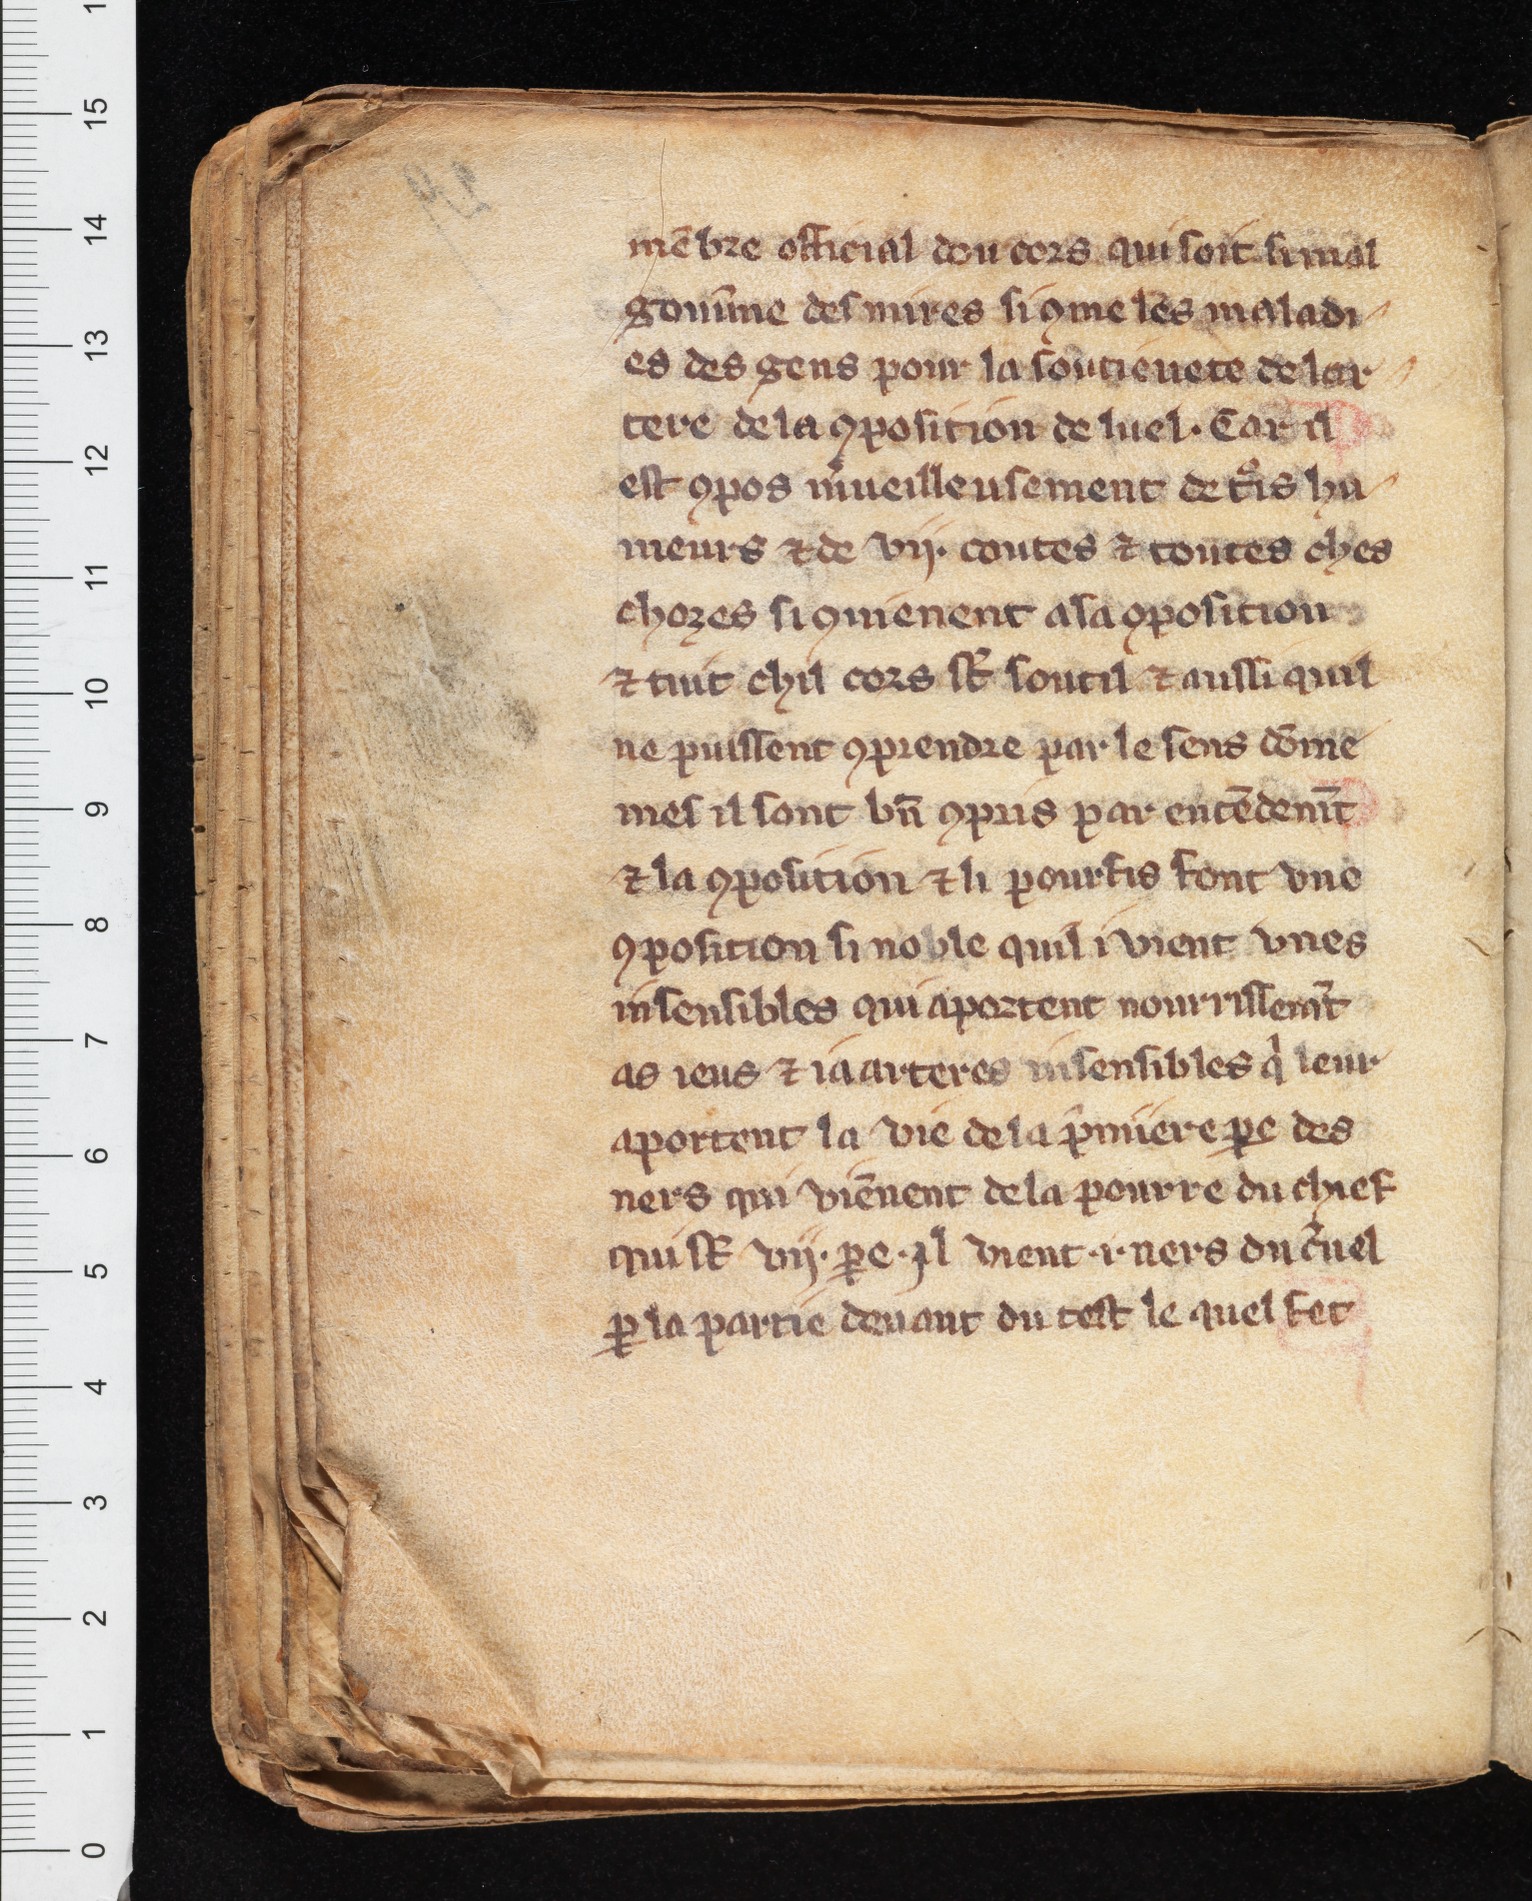 mēbre official dou cors qui soit si mal
gouūne des mires si ꝯme les maladi
es des gens pour la soutieuete de lar
tere de la ꝯposition de luel. Car il
est ꝯpos mͥueilleusement de tͦis hu
meurs ⁊ de vij. coutes ⁊ toutes ches
chozes si ꝯuienent a sa ꝯposition
⁊ tuit chil cors st̄ soutil ⁊ aussi quil
ne puissent ꝯprendre par le sens dōme
mes il sont bn̄ ꝯpris par entēdemt̄
⁊ la ꝯposition ⁊ li pourfis font vne
ꝯposition si noble quil i vient vnes
insensibles qui aportent nourrissemt̄
as ieus ⁊ ia arteres insensibles qͥ leur
aportent la vie de la p̄miere ꝑe des
ners qui viēnent de la pourre du chief
qui st̄ vij. ꝑe. Il vient .i. ners du c̄uel
ꝑ la partie deuant du test le quel fet